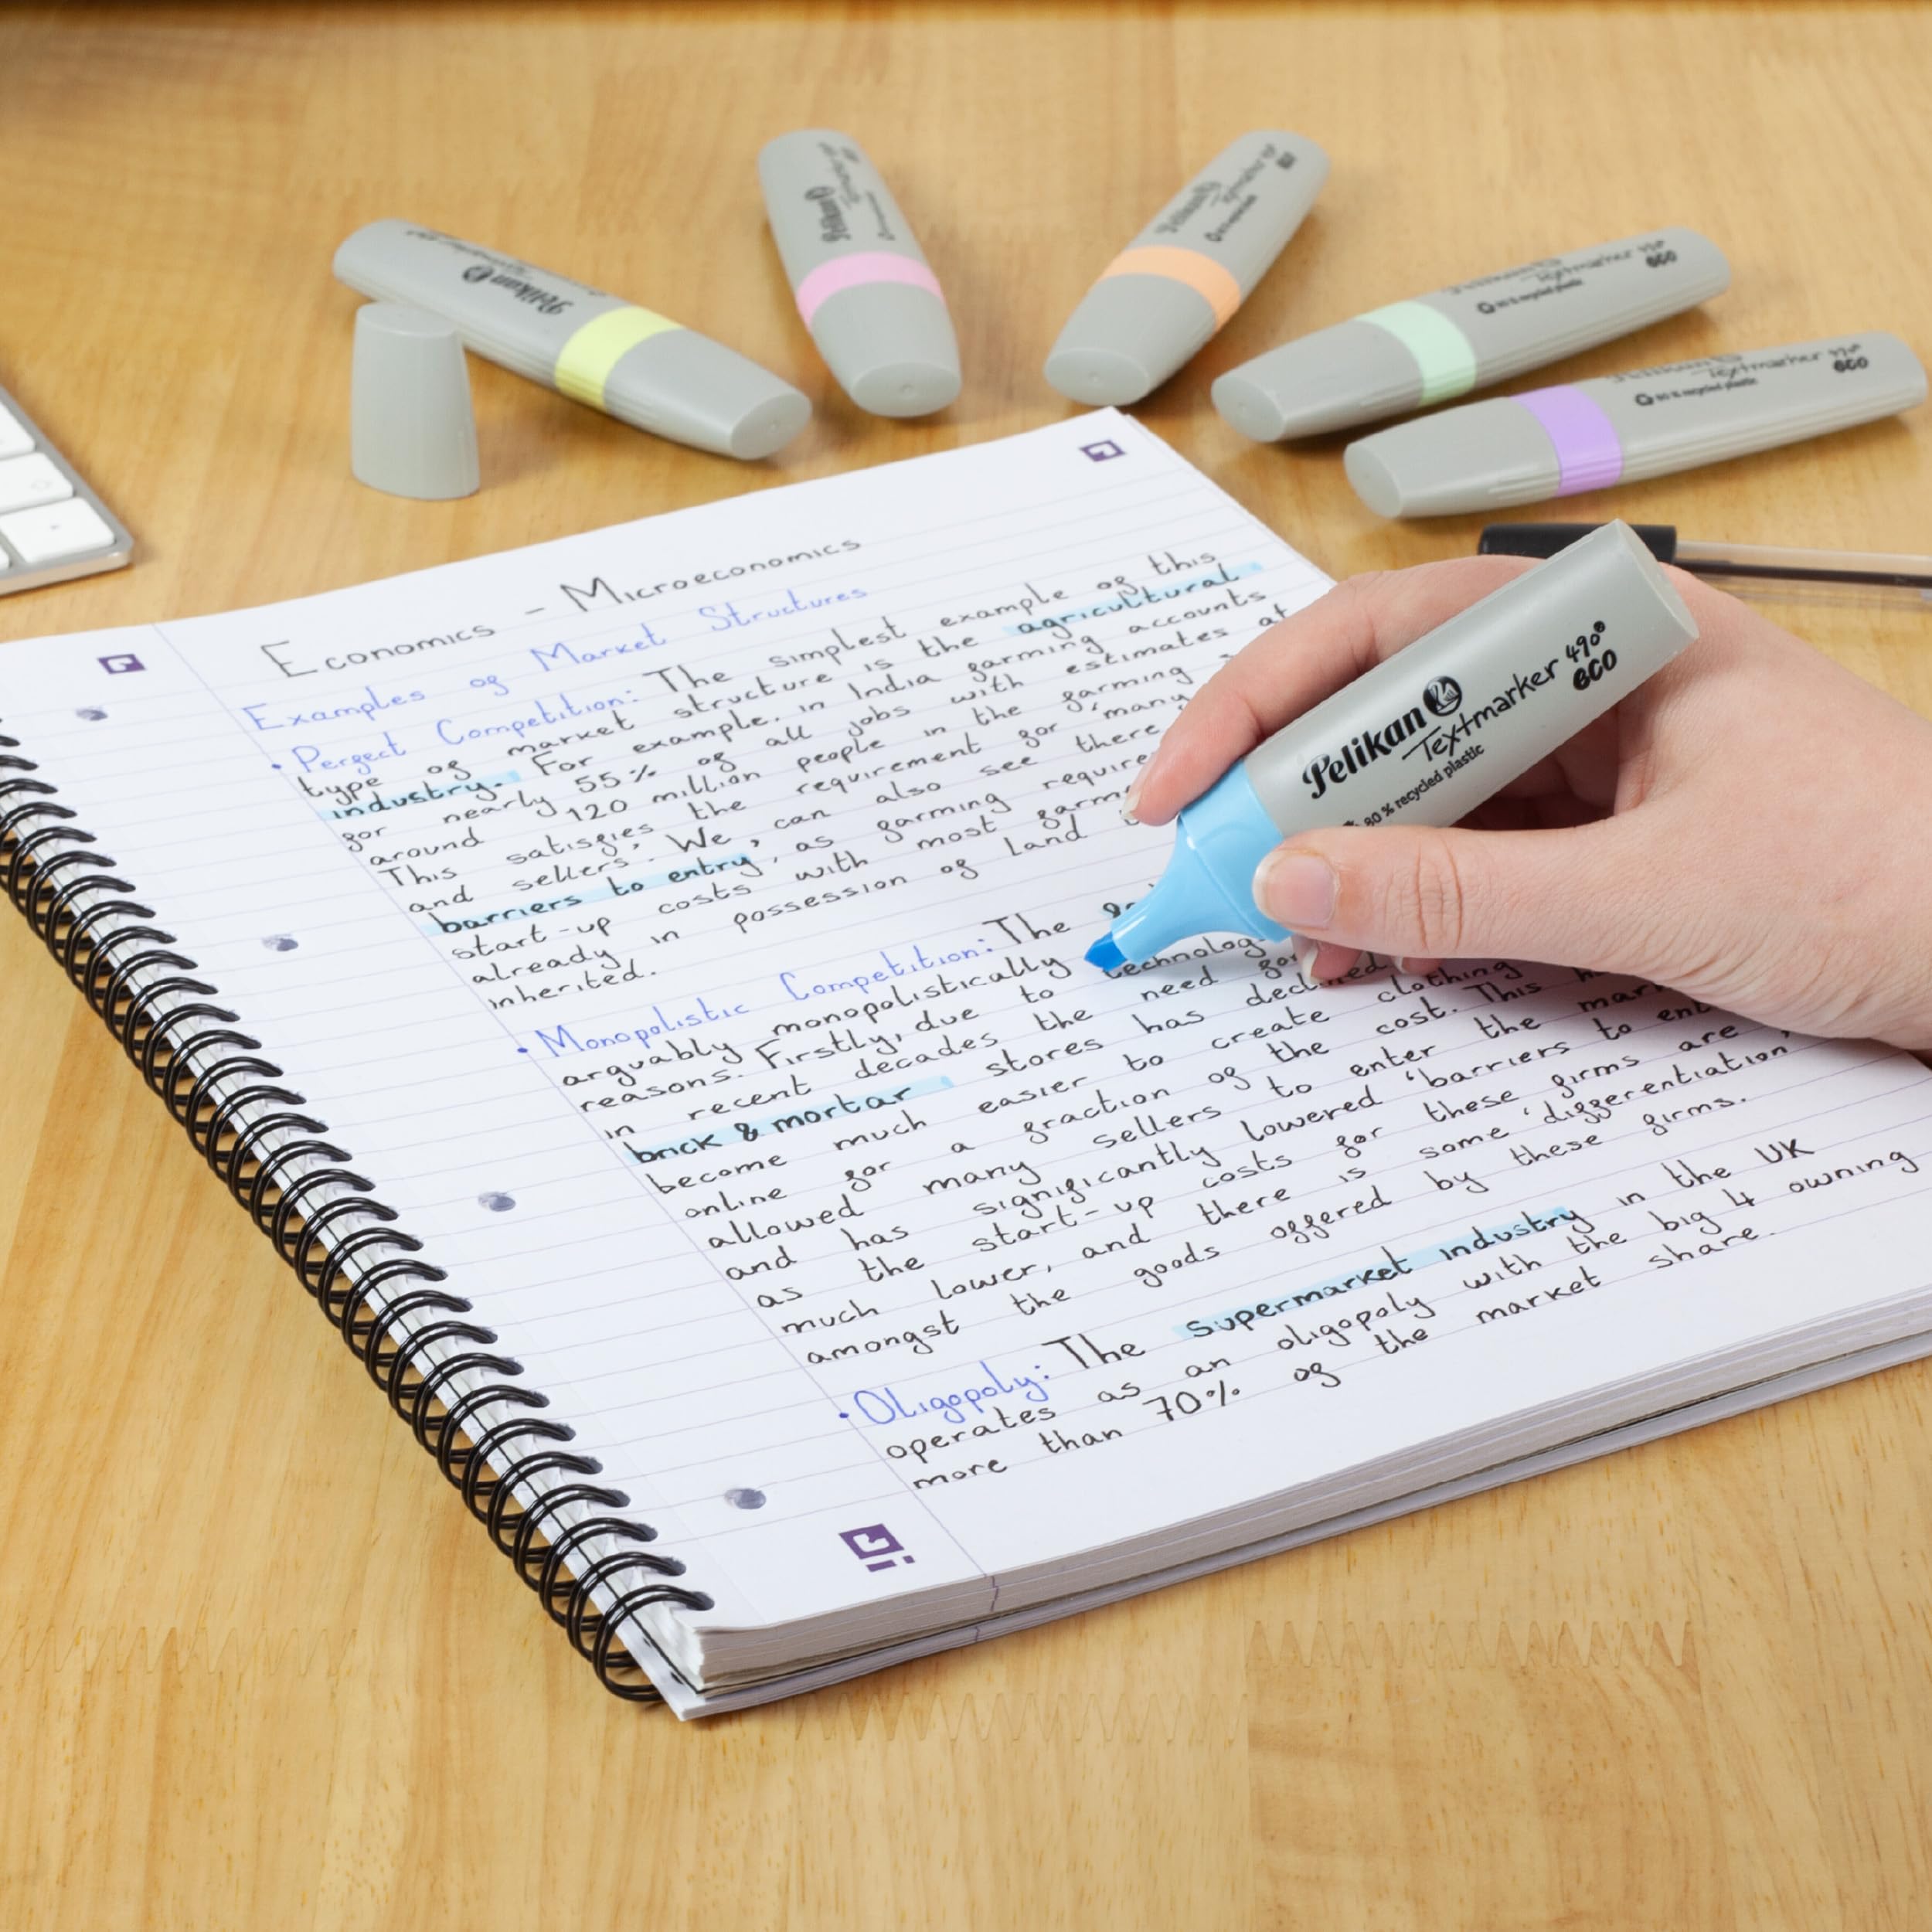 Economics - Microeconomics
Examples of Market Structures
• Perfect Competition: The simplest example of this
type of market structure is the agricultural
industry. For example, in India farming accounts
for nearly 55% of all jobs with estimates at
around 120 million people in the farming
This satisfies the requirement for 'many
and sellers'. We, can also see there
barriers to entry, as farming require
start-up costs with most farm
already in possession of land
inherited.
• Monopolistic Competition: The
arguably monopolistically
reasons. Firstly, due to technolog
in recent decades the need for
brick & mortar stores has declined
become much easier to create clothing
online for a fraction of the cost. This
allowed many sellers to enter the mar
and has significantly lowered 'barriers to ent
as the start-up costs for these firms are
much lower, and there is some 'differentiation'
amongst the goods offered by these firms.
• Oligopoly: The supermarket industry in the UK
operates as an oligopoly with the big 4 owning
more than 70% of the market share.
Pelikan
Textmarker 490®
eco
80% recycled plastic
Pelikan
Pelikan
Pelikan
Textmarker 490®
eco
80% recycled plastic
Textmarker 490®
eco
80% recycled plastic